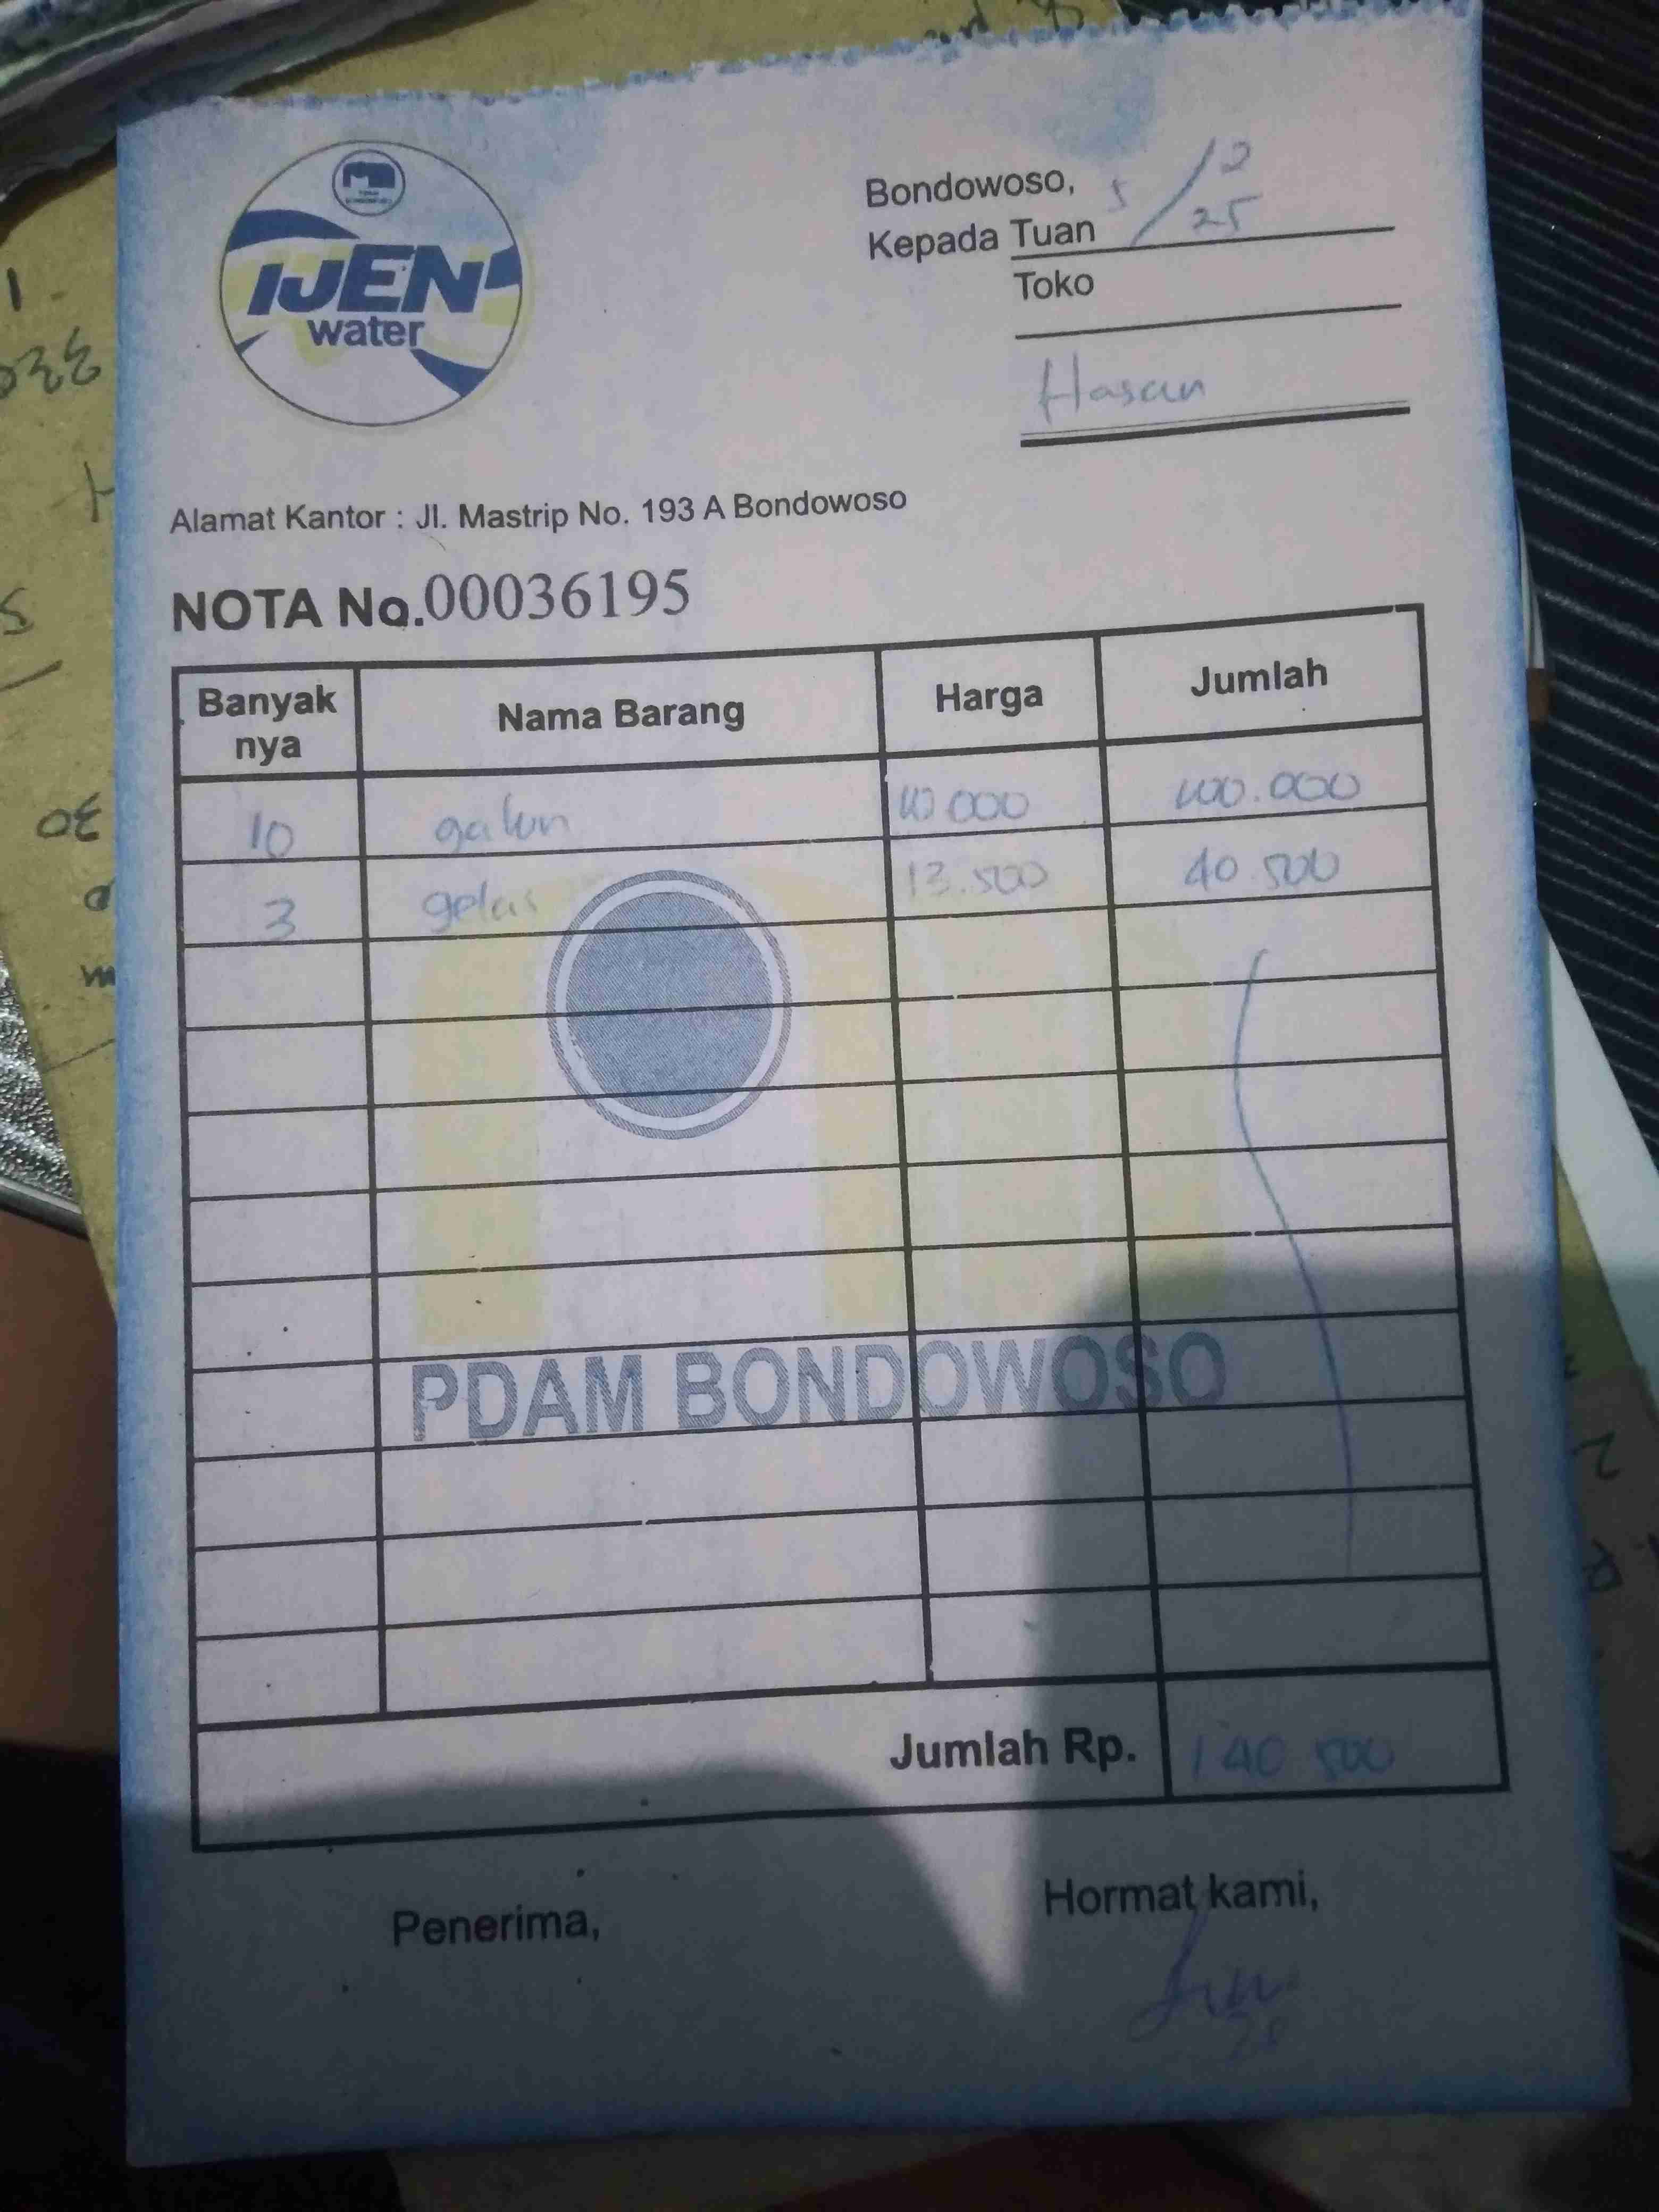 IJEN
water
Bondowoso, 5/2
25
Kepada Tuan
Toko
Hasan
Alamat Kantor : Jl. Mastrip No. 193 A Bondowoso
NOTA No.00036195
Banyak nya Nama Barang Harga Jumlah
10 galon 10 000 100.000
3 gelas 13.500 40 500
PDAM BONDOWOSO
Jumlah Rp. 140 500
Penerima, Hormat kami,